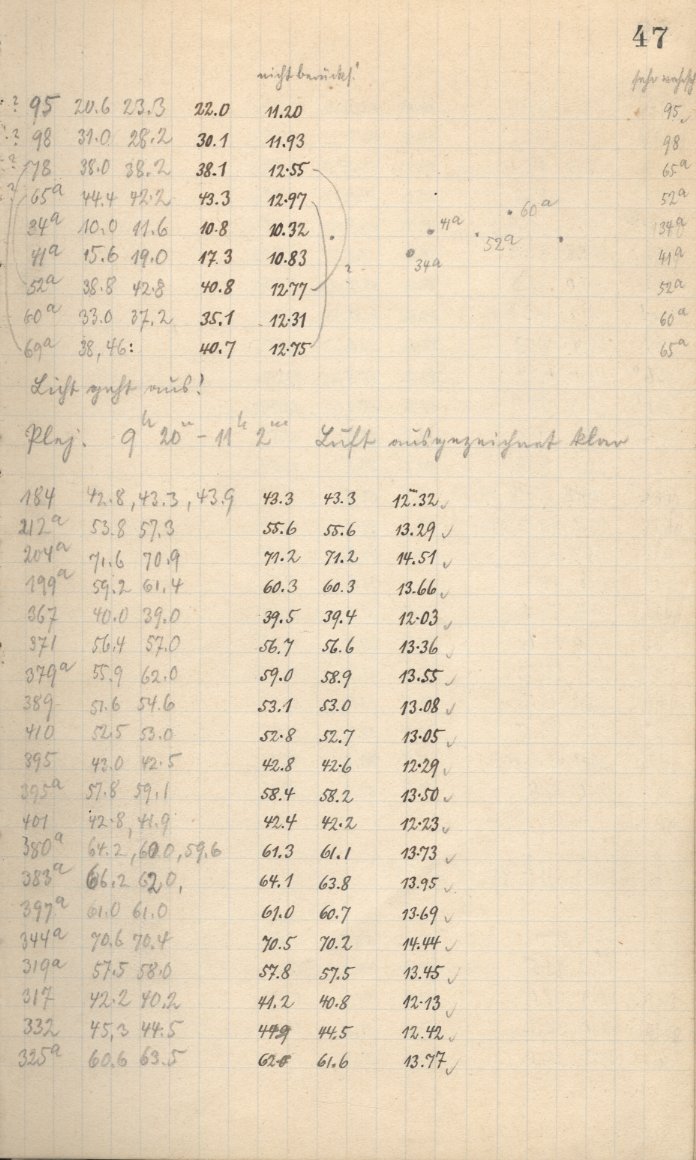 47
nicht berücks.
? 95 20.6 23.3 22.0 11.20
? 98 31.0 28.2 30.1 11.93
? 78 38.0 38.2 38.1 12.55
? 65a 44.4 42.2 43.3 12.97
34a 10.0 11.6 10.8 10.32
41a 15.6 19.0 17.3 10.83
52a 38.8 42.8 40.8 12.77
60a 33.0 37.2 35.1 12.31
69a 38, 46: 40.7 12.75
60a
41a
52a
34a
?
sehr
95
98
65a
52a
34a
41a
52a
60a
65a
Licht geht aus!
Plej. 9h 20m - 11h 2m Luft ausgezeichnet klar
184 42.8, 43.3, 43.9 43.3 43.3 12.m32 ✓
212a 53.8 57.3 55.6 55.6 13.29 ✓
204a 71.6 70.9 71.2 71.2 14.51 ✓
199a 59.2 61.4 60.3 60.3 13.66 ✓
367 40.0 39.0 39.5 39.4 12.03 ✓
371 56.4 57.0 56.7 56.6 13.36 ✓
379a 55.9 62.0 59.0 58.9 13.55 ✓
389 51.6 54.6 53.1 53.0 13.08 ✓
410 52.5 53.0 52.8 52.7 13.05 ✓
395 43.0 42.5 42.8 42.6 12.29 ✓
395a 57.8 59.1 58.4 58.2 13.50 ✓
401 42.8, 41.9 42.4 42.2 12.23 ✓
380a 64.2, 60.0, 59.6 61.3 61.1 13.73 ✓
383a 66.2 62.0, 64.1 63.8 13.95 ✓
397a 61.0 61.0 61.0 60.7 13.69 ✓
344a 70.6 70.4 70.5 70.2 14.44 ✓
319a 57.5 58.0 57.8 57.5 13.45 ✓
317 42.2 40.2 41.2 40.8 12.13 ✓
332 45.3 44.5 44.9 44.5 12.42 ✓
325a 60.6 63.5 62.0 61.6 13.77 ✓